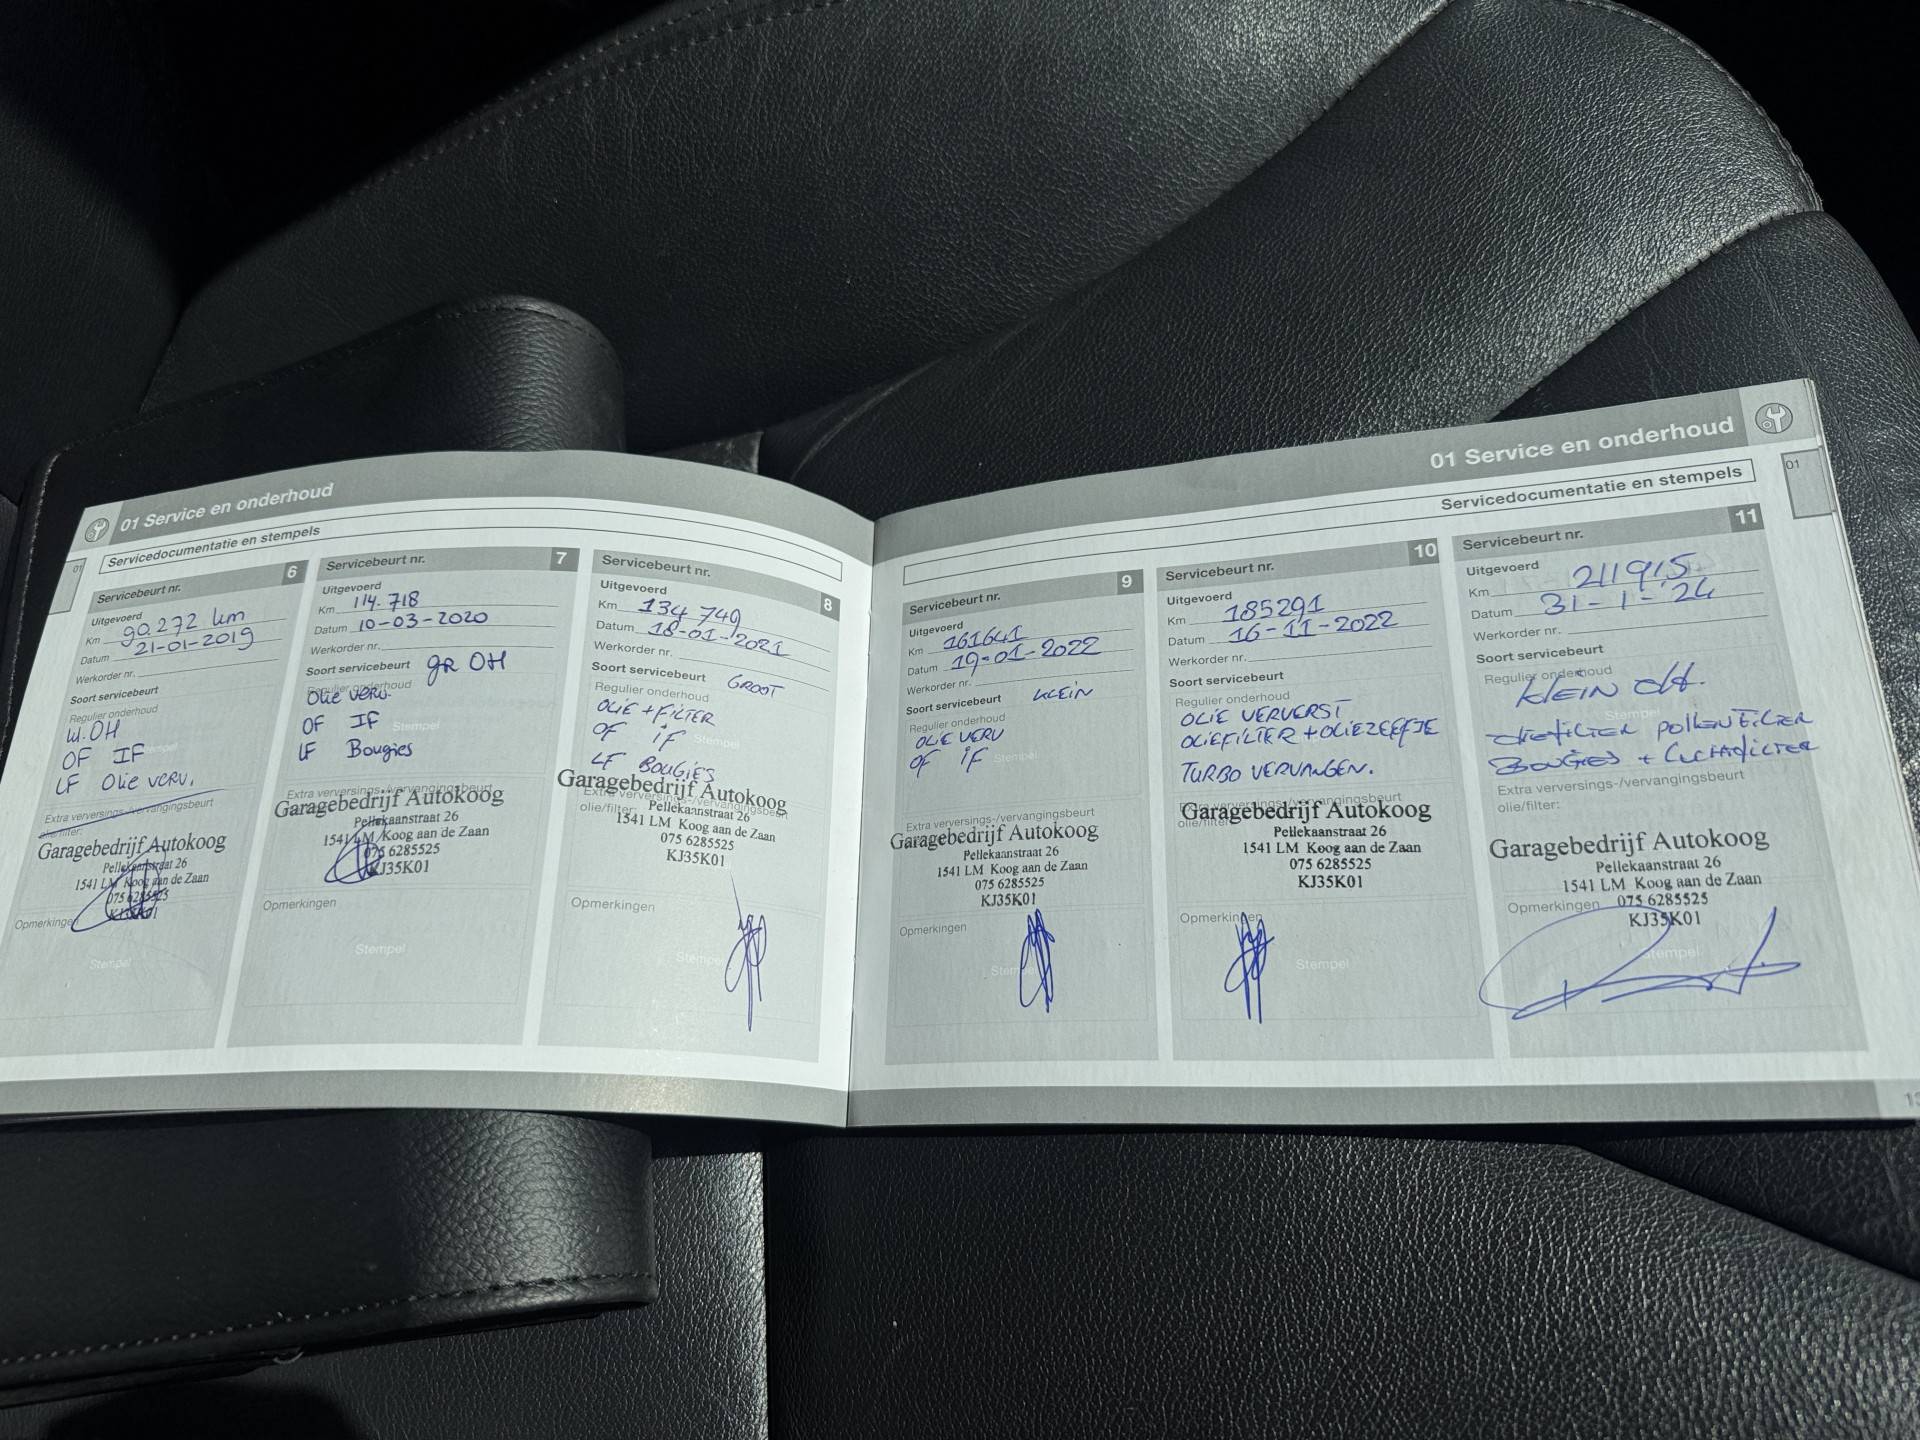 01 Service en onderhoud
Servicedocumentatie en stempels
01
Servicebeurt nr. 6
Uitgevoerd
Km 90.272 km
Datum 21-01-2019
Werkorder nr.
Soort servicebeurt
Regulier onderhoud
OH
OF IF
LF Olie verv.
Extra verversings-/vervangingsbeurt
olie/filter:
Garagebedrijf Autokoog
Pellekaanstraat 26
1541 LM Koog aan de Zaan
075 6285525
KJ35K01
Opmerkingen
Stempel
Servicebeurt nr. 7
Uitgevoerd
Km 114.718
Datum 10-03-2020
Werkorder nr.
Soort servicebeurt gR OH
Regulier onderhoud
Olie verv.
OF IF
Stempel
LF Bougies
Extra verversings-/vervangingsbeurt
Garagebedrijf Autokoog
Pellekaanstraat 26
1541 LM Koog aan de Zaan
075 6285525
KJ35K01
Opmerkingen
Stempel
Servicebeurt nr. 8
Uitgevoerd
Km 134 749
Datum 18-01-2021
Werkorder nr.
Soort servicebeurt GROOT
Regulier onderhoud
OLIE + FILTER
OF IF
Stempel
LF BOUGIES
Garagebedrijf Autokoog
Extra verversings-/vervangingsbeurt
olie/filter:
Pellekaanstraat 26
1541 LM Koog aan de Zaan
075 6285525
KJ35K01
Opmerkingen
Stempel
01 Service en onderhoud
Servicedocumentatie en stempels
01
Servicebeurt nr. 9
Uitgevoerd
Km 161641
Datum 19-01-2022
Werkorder nr.
Soort servicebeurt KLEIN
Regulier onderhoud
OLIE VERV
OF IF
Extra verversings-/vervangingsbeurt
Garagebedrijf Autokoog
Pellekaanstraat 26
1541 LM Koog aan de Zaan
075 6285525
KJ35K01
Opmerkingen
Stempel
Servicebeurt nr. 10
Uitgevoerd
Km 185291
Datum 16-11-2022
Werkorder nr.
Soort servicebeurt
Regulier onderhoud
OLIE VERVERST
OLIEFILTER + OLIEZEEFJE
TURBO VERVANGEN.
Extra verversings-/vervangingsbeurt
olie/filter
Garagebedrijf Autokoog
Pellekaanstraat 26
1541 LM Koog aan de Zaan
075 6285525
KJ35K01
Opmerkingen
Stempel
Servicebeurt nr. 11
Uitgevoerd
Km 211915
Datum 31-1-'24
Werkorder nr.
Soort servicebeurt
Regulier onderhoud
KLEIN OH.
Stempel
OLIEFILTER POLLENFILTER
BOUGIES + LUCHTFILTER
Extra verversings-/vervangingsbeurt
olie/filter:
Garagebedrijf Autokoog
Pellekaanstraat 26
1541 LM Koog aan de Zaan
075 6285525
KJ35K01
Opmerkingen
Stempel